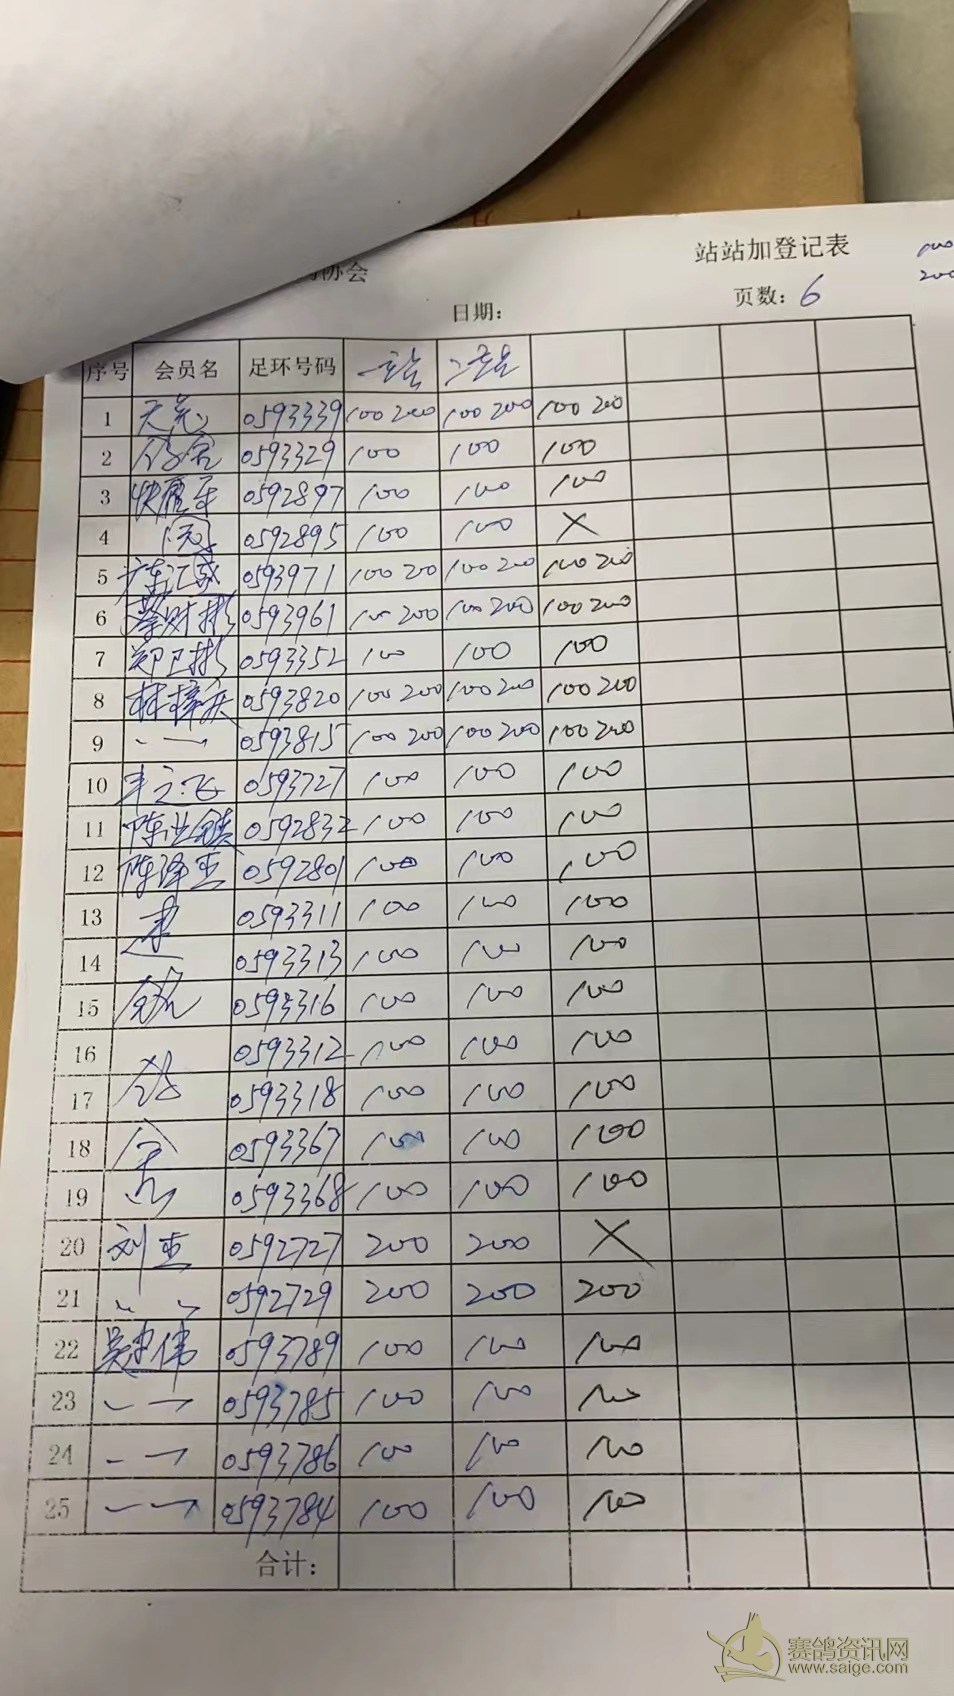 协会
站站加登记表
100
200
日期：
页数：6
序号 会员名 足环号码 一站 二站
1 0593339 100 200 100 200 100 200
2 0593329 100 100 100
3 快鹰车 0592897 100 100 100
4 0592895 100 100 ×
5 广东江武 0593971 100 200 100 200 100 200
6 蔡财彬 0593961 100 200 100 200 100 200
7 郑卫彬 0593352 100 100 100
8 林 0593820 100 200 100 200 100 200
9 0593815 100 200 100 200 100 200
10 丰之飞 0593727 100 100 100
11 陈业镇 0592832 100 100 100
12 陈泽亚 0592801 100 100 100
13 0593311 100 100 100
14 0593313 100 100 100
15 0593316 100 100 100
16 0593312 100 100 100
17 0593318 100 100 100
18 0593367 100 100 100
19 0593368 100 100 100
20 刘 0592727 200 200 ×
21 0592729 200 200 200
22 吴建伟 0593789 100 100 100
23 0593785 100 100 100
24 0593786 100 100 100
25 0593784 100 100 100
合计：
赛鸽资讯网
www.saige.com